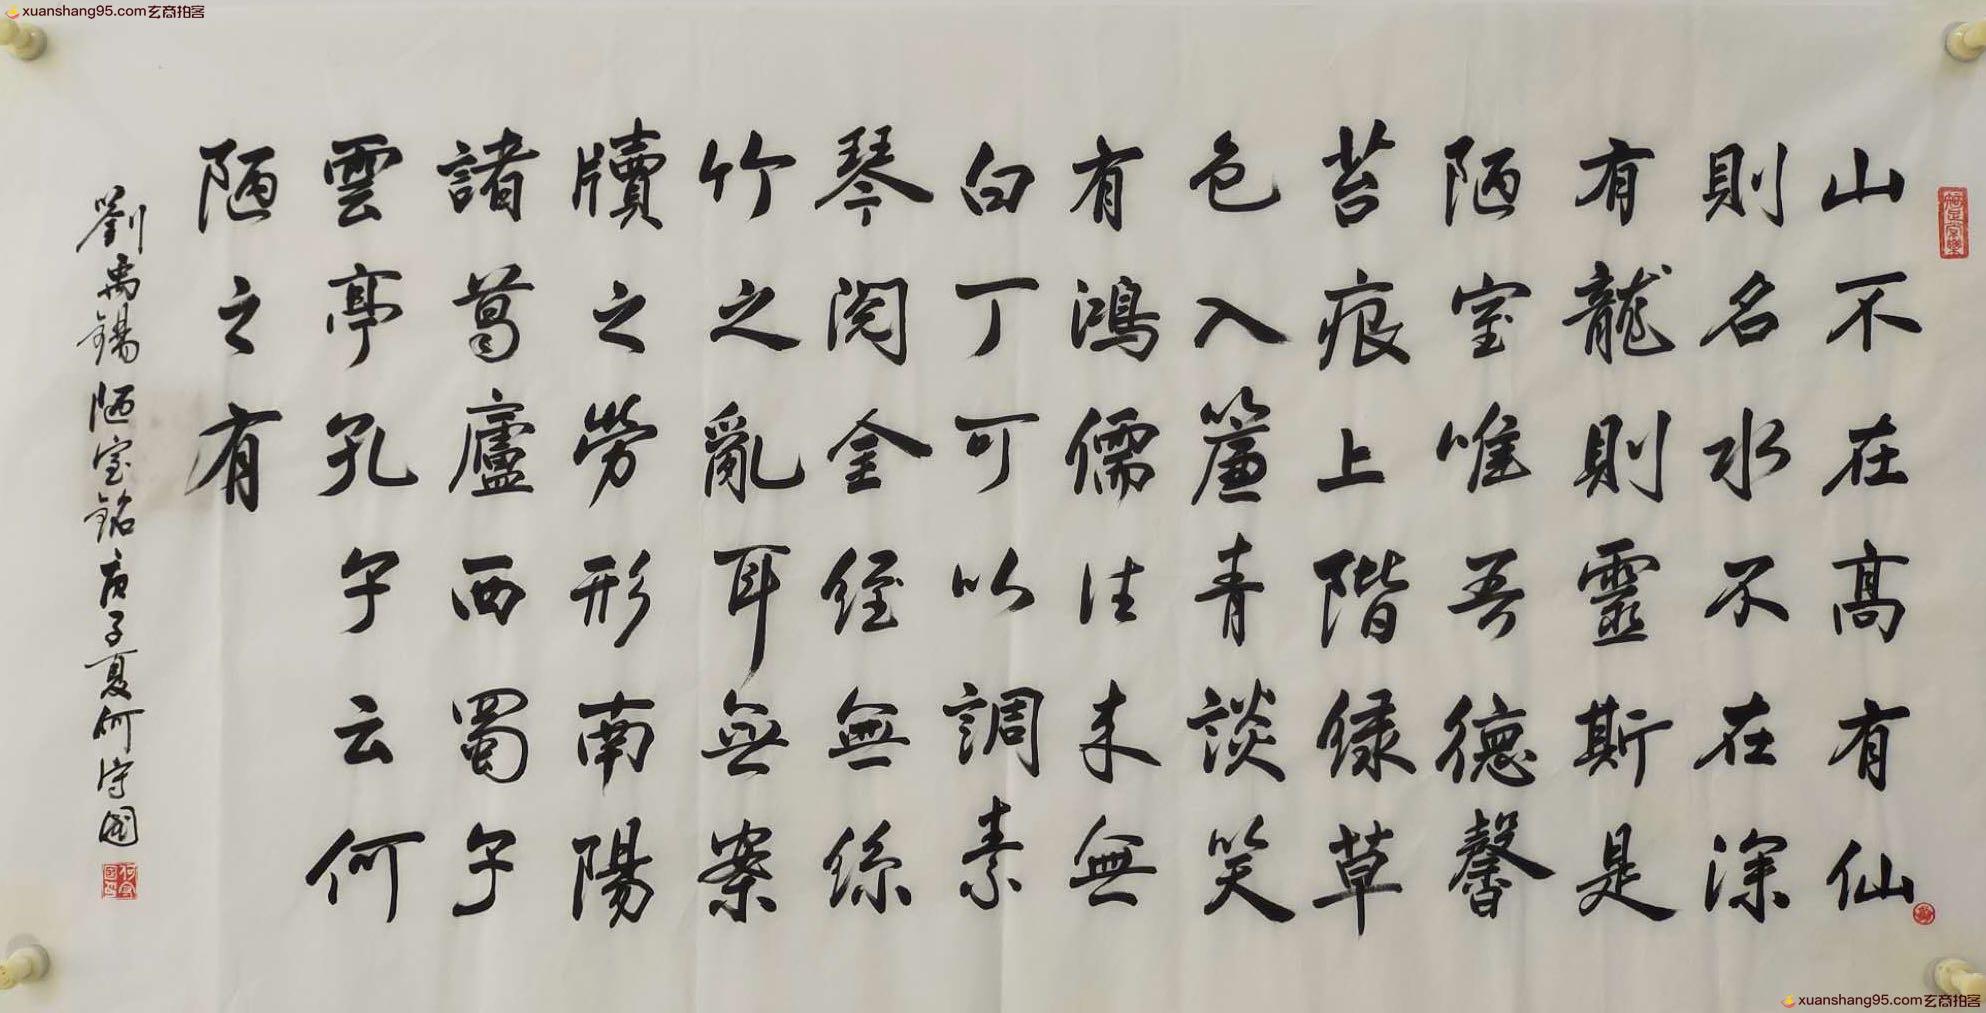 xuanshang95.com玄商拍客
山不在高有仙
則名水不在深
有龍則靈斯是
陋室唯吾德馨
苔痕上階緑草
色入簾青談笑
有鴻儒往来無
白丁可以調素
琴閱金經無絲
竹之亂耳無案
牘之勞形南陽
諸葛廬西蜀子
雲亭孔子云何
陋之有
劉禹錫陋室銘庚子夏何守國
xuanshang95.com玄商拍客